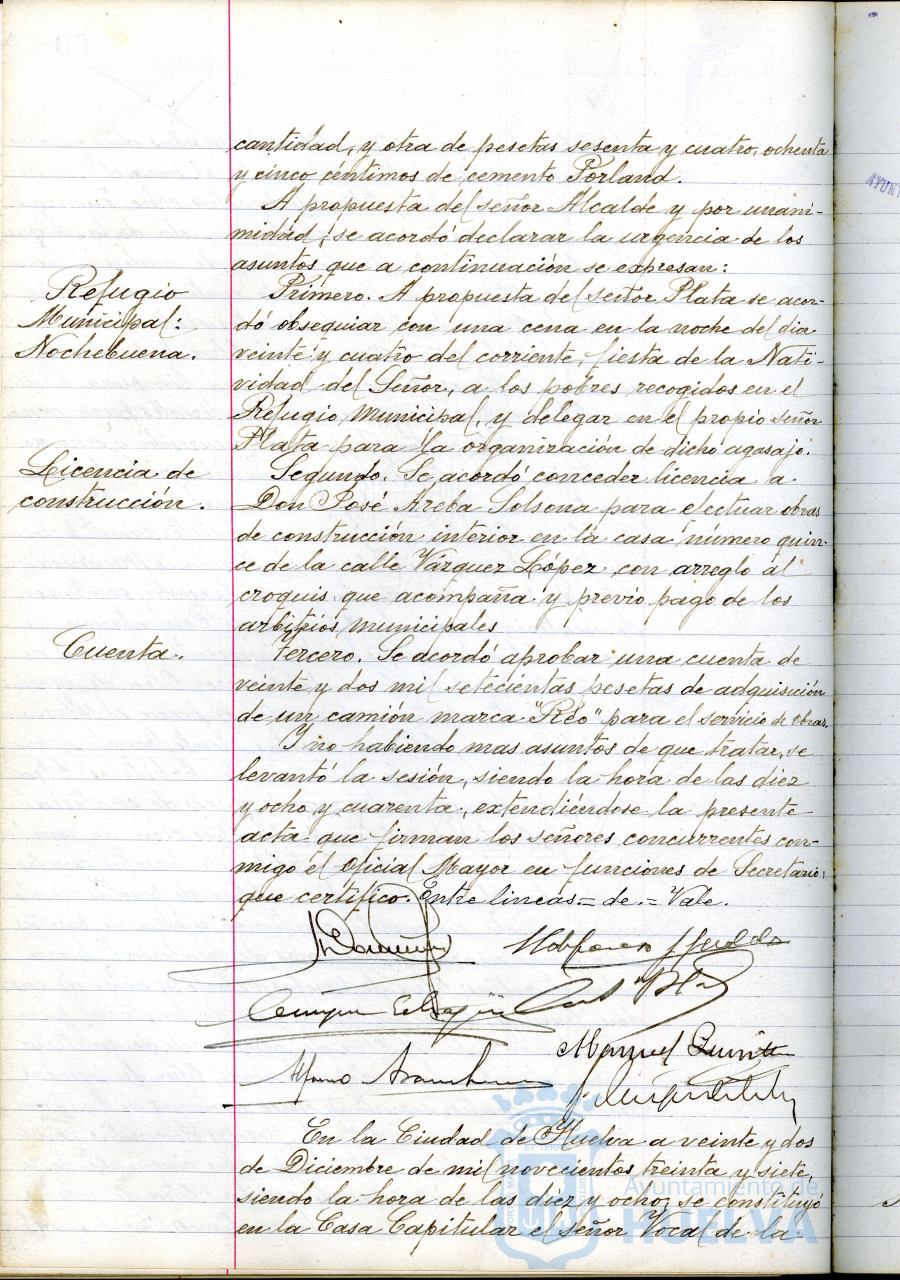 cantidad, y otra de pesetas sesenta y cuatro, ochenta
y cinco centimos de cemento Porland.
A propuesta del señor Alcalde y por unani-
midad, se acordó declarar la urgencia de los
asuntos que a continuación se expresan:
Refugio
Municipal:
Nochebuena.
Primero. A propuesta del señor Plata se acor-
dó obsequiar con una cena en la noche del dia
veinte y cuatro del corriente, fiesta de la Nati-
vidad del Señor, a los pobres recogidos en el
Refugio Municipal, y delegar en el propio señor
Plata para la organización de dicho agasajo.
Licencia de
construcción.
Segundo. Se acordó conceder licencia a
Don José Areba Solsona para efectuar obras
de construcción interior en la casa número quin-
ce de la calle Vázquez López, con arreglo al
croquis que acompaña y previo pago de los
arbitrios municipales
Cuenta.
Tercero. Se acordó aprobar una cuenta de
veinte y dos mil setecientas pesetas de adquisición
de un camión marca "Reo" para el servicio de obras.
Y no habiendo mas asuntos de que tratar, se
levantó la sesión, siendo la hora de las diez
y ocho y cuarenta, extendiendose la presente
acta que firman los señores concurrentes con-
migo el Oficial Mayor en funciones de Secretario,
que certifico. Entre lineas = de = Vale.
Manuel
En la Ciudad de Huelva a veinte y dos
de Diciembre de mil novecientos treinta y siete,
siendo la hora de las diez y ocho, se constituyó
en la Casa Capitular el señor Vocal de la
Ayuntamiento de
HUELVA